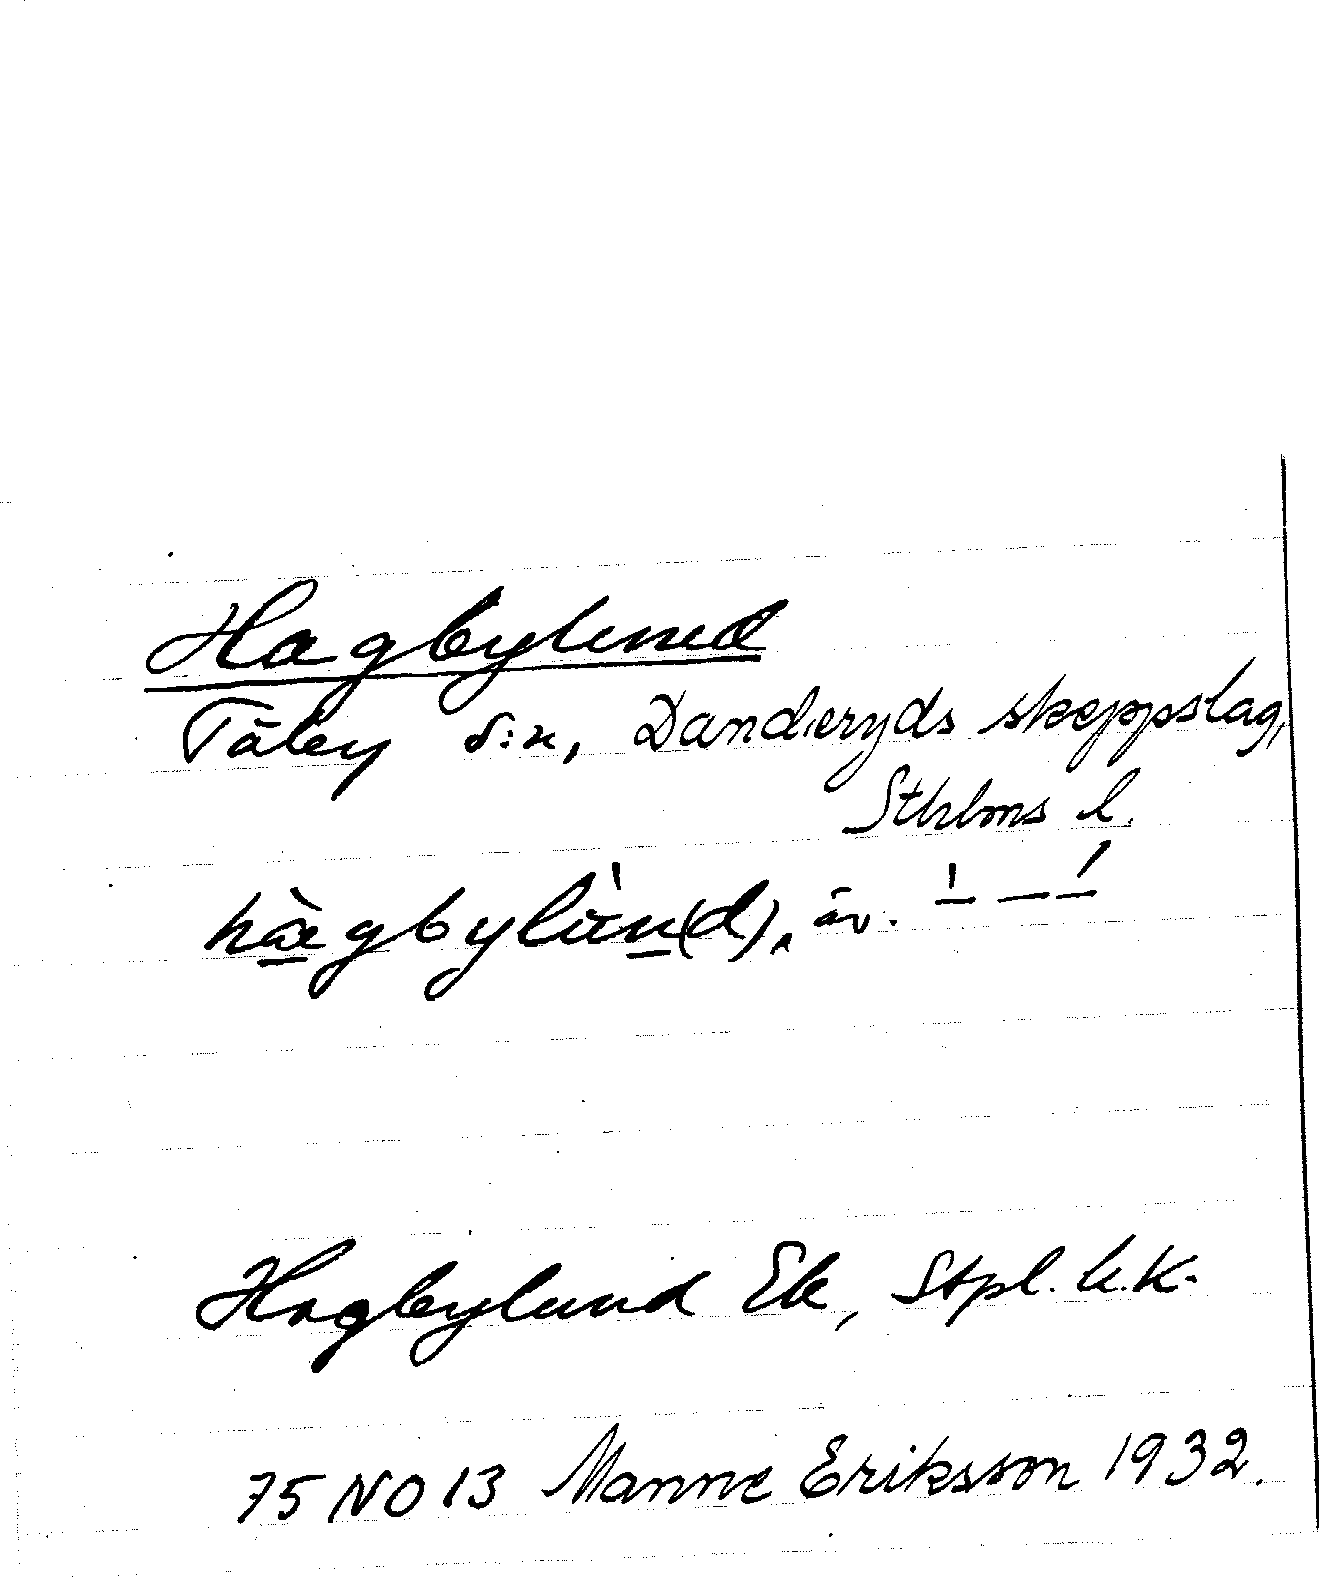 Hagbylund
Täby s:n, Danderyds skeppslag,
Sthlms l.
hàgbylùn(d), äv. ¹ – – ´
Hagbylund Ek, Stpl. h.k.
75 NO 13 Manne Eriksson 1932.